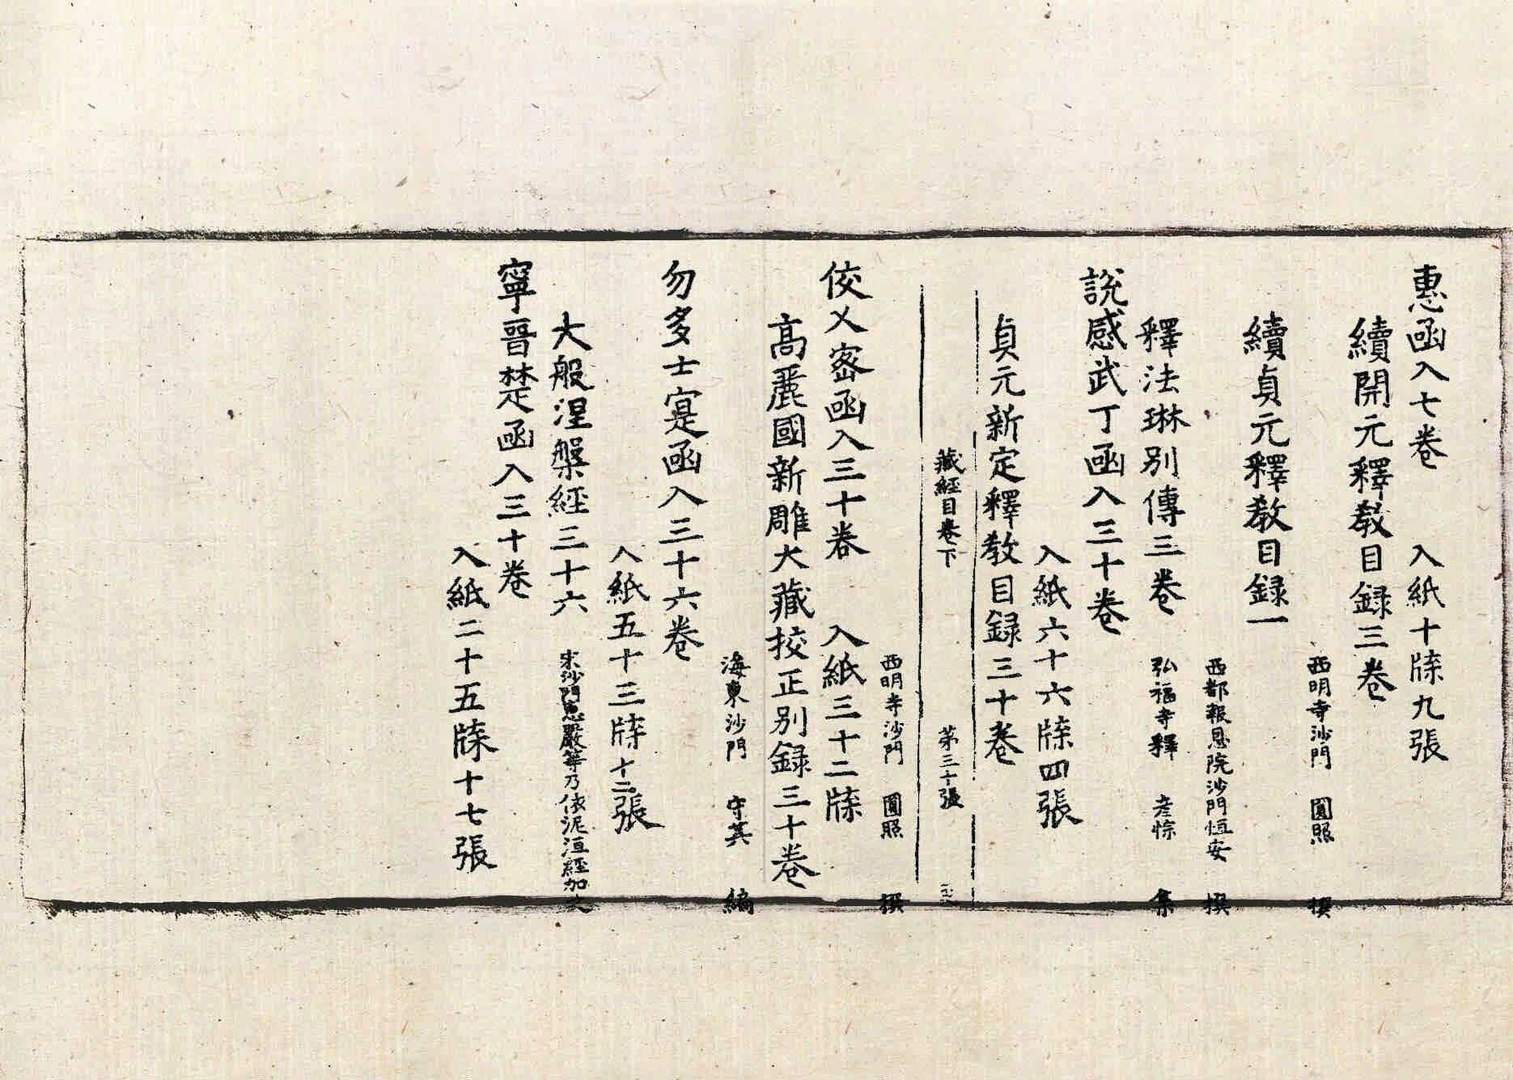 惠函入七卷 入紙十牒九張
續開元釋教目録三卷
西明寺沙門 圓照 撰
續貞元釋教目録一
西都報恩院沙門恒安 撰
釋法琳別傳三卷 弘福寺釋 彦悰 集
說感武丁函入三十卷
入紙六十六牒四張
貞元新定釋教目録三十卷
藏經目卷下 第三十張
西明寺沙門 圓照 撰
佼乂密函入三十卷 入紙三十二牒
高麗國新雕大藏挍正別録三十卷
海東沙門 守其 編
勿多士寔函入三十六卷
入紙五十三牒十二張
大般涅槃經三十六 宋沙門惠嚴等乃依泥洹經加文
寧晉楚函入三十卷
入紙二十五牒十七張